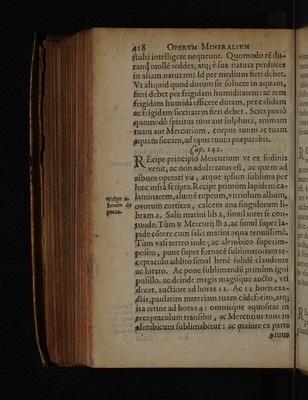 418 OPERVM MINERALIVM
stulti intelligere nequeunt. Quomodo rē du-
ram mollē reddes, atq; è sua natura perduces
in aliam naturam? Id per medium fieri debet.
Vt aliquid quod durum sit soluere in aquam,
fieri debet per frigidam humiditatem: ac rem
frigidam humidā efficere duram, per calidam
ac frigidam siccitatem fieri debet. Scies porrò
quomodò spiritus tuus aut sulphura, animam
tuam aut Mercurium, corpus tuum ac tuam
aquam siccam, ad opus tuum præparabis.
Cap. 142.
REcipe principiò Mercurium vt ex fodinis
venit, ac non adulteratus est, ac quem ad
album operari vis, atque ipsum sublima per
hæc infrà scripta. Recipe primùm lapidem ca-
laminarem, alumē rupeum, vitriolum album,
ovorum cortices, calcem ana singulorum li-
bram 2. Salis marini lib 2, simul inter se con-
tunde. Tùm ☿ Mercurij lb 2, ac simul super la-
pide cōtere cum salis marini aqua tenuissimè.
Tùm vasi terreo inde, ac alembico superim-
posito, pone super fornacē sublimatoriam re-
ceptaculo addito simul benè solidè claudente
ac lutato. Ac pone sublimandū primùm igni
pusillo, ac deinde magis magisque aucto, vti
docet, auctiore ad horas 12. Ac 12 horis exa-
ctis, paulatim materiam tuam cādefacito, atq;
ita retine ad horas 4: omnisque aquositas in
receptaculum transibit, ac Mercurius tuus in
alembicum sublimabitur: ac maiore ex parte